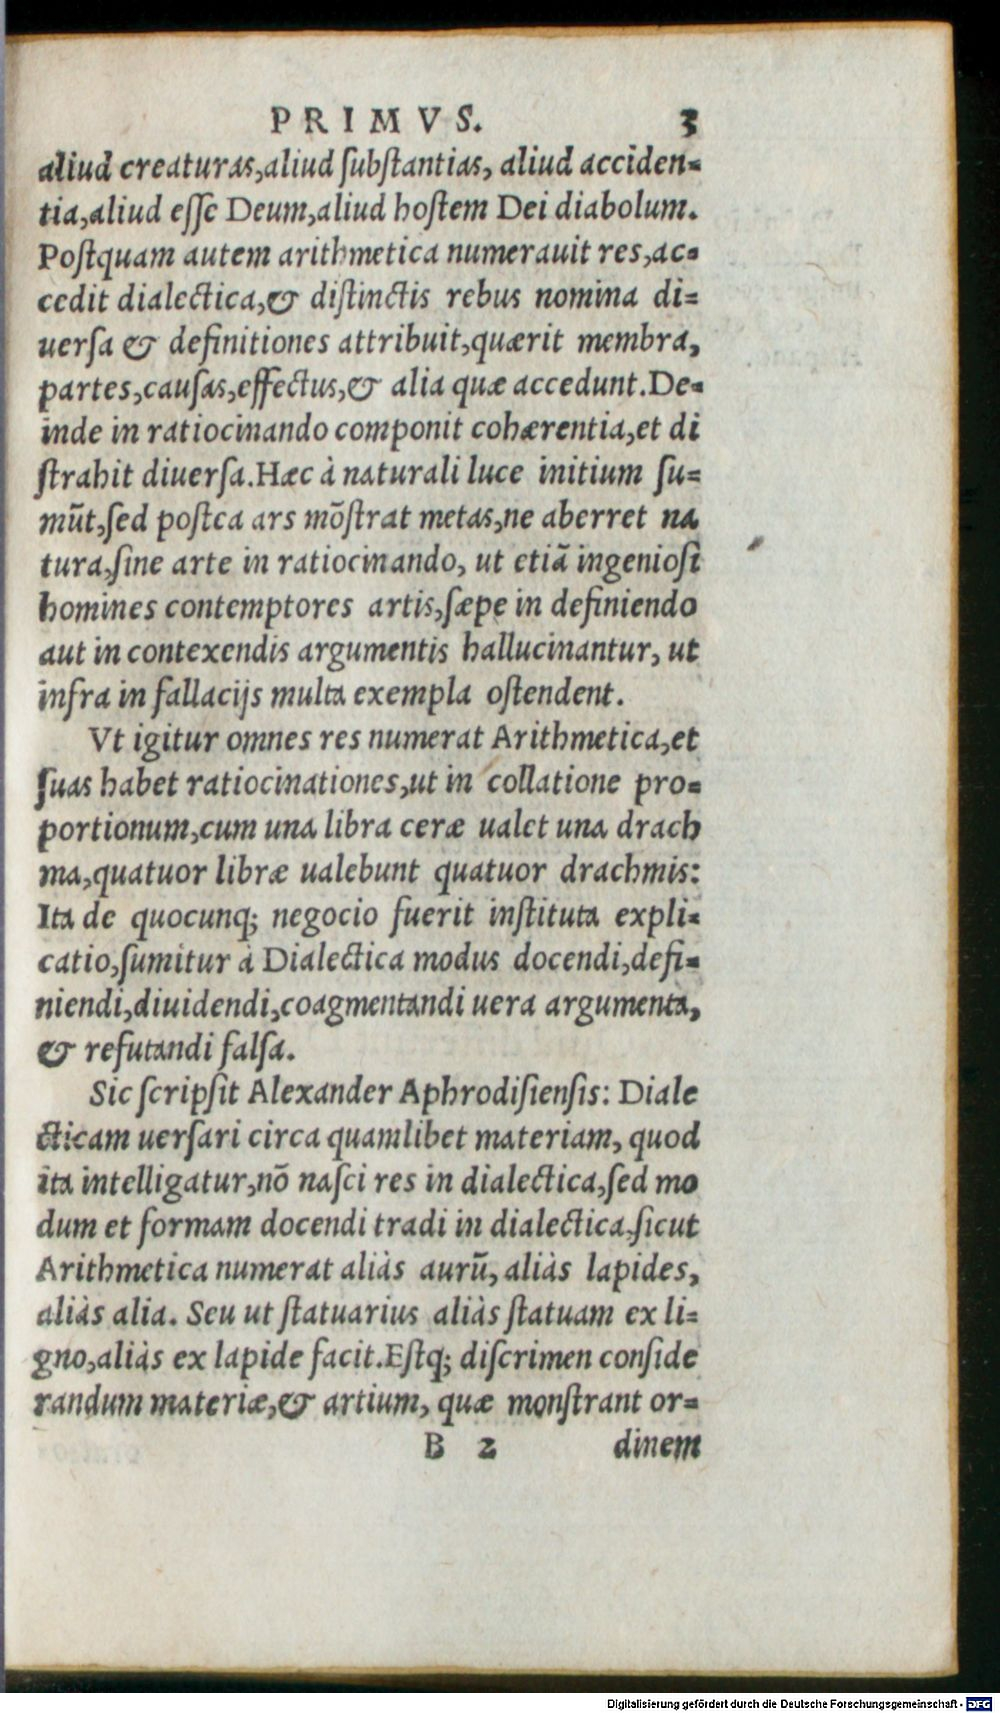 PRIMVS. 3
aliud creaturas,aliud ſubſtantias, aliud acciden=
tia,aliud eſſe Deum,aliud hoſtem Dei diabolum.
Poſtquam autem arithmetica numerauit res,ac=
cedit dialectica,& diſtinctis rebus nomina di=
uerſa & definitiones attribuit,quærit membra,
partes,cauſas,effectus,& alia quæ accedunt.De=
inde in ratiocinando componit cohærentia,et di
ſtrahit diuerſa.Hæc à naturali luce initium ſu=
mūt,ſed poſtea ars mōſtrat metas,ne aberret na
tura,ſine arte in ratiocinando, ut etiā ingenioſi
homines contemptores artis,ſæpe in definiendo
aut in contexendis argumentis hallucinantur, ut
infra in fallacijs multa exempla oſtendent.
Vt igitur omnes res numerat Arithmetica,et
ſuas habet ratiocinationes,ut in collatione pro=
portionum,cum una libra ceræ ualet una drach
ma,quatuor libræ ualebunt quatuor drachmis:
Ita de quocunq; negocio fuerit inſtituta expli=
catio,ſumitur à Dialectica modus docendi,defi=
niendi,diuidendi,coagmentandi uera argumenta,
& refutandi falſa.
Sic ſcripſit Alexander Aphrodiſienſis: Diale
cticam uerſari circa quamlibet materiam, quod
ita intelligatur,nō naſci res in dialectica,ſed mo
dum et formam docendi tradi in dialectica,ſicut
Arithmetica numerat aliàs aurū, aliàs lapides,
aliàs alia. Seu ut ſtatuarius aliàs ſtatuam ex li=
gno,aliàs ex lapide facit.Eſtq; diſcrimen conſide
randum materiæ,& artium, quæ monſtrant or=
B 2 dinem
Digitalisierung gefördert durch die Deutsche Forschungsgemeinschaft - DFG